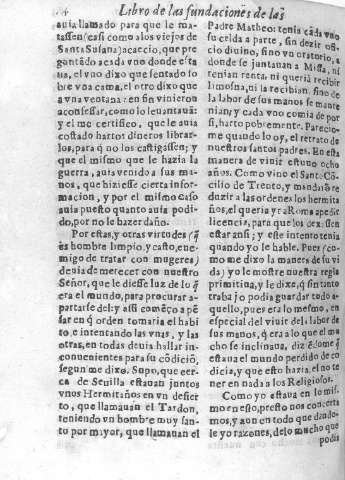 Libro de las fundaciones de las
auia llamado para que le ma-
tassen (casi como a los viejos de
Santa Susana) acaecio, que pre
guntādo a cada vno donde esta
ua, el vno dixo que sentado so
bre vna cama, el otro dixo que
a vna ventana: en fin vinieron
a confessar, como lo leuantauā:
y el me certifico, que le auia
costado hartos dineros librar-
los, para q̄ no los castigassen; y
que el mismo que le hazia la
guerra, auia venido a sus ma-
nos, que hiziesse cierta infor-
macion, y por el mismo caso
auia puesto quanto auia podi-
do, por no le hazer daño.
Por estas, y otras virtudes (q̄
es hombre limpio, y casto, ene-
migo de tratar con mugeres)
deuia de merecer con nuestro
Señor, que le diesse luz de lo q̄
era el mundo, para procurar a-
partarse del; y assi començo a pē
sar en q̄ orden tomaria el habi
to, e intentando las vnas, y las
otras, en todas deuia hallar in-
conuenientes para su cōdiciō,
segun me dixo. Supo, que cer-
ca de Seuilla estauan juntos
vnos Hermitaños en vn desier
to, que llamauan el Tardon,
teniendo vn hombre muy san-
to por mayor, que llamauan el
Padre Matheo: tenia cada vno
su celda a parte, sin dezir ofi-
cio diuino, sino vn oratorio, a
donde se juntauan a Missa, ni
tenian renta, ni querià recibir
limosna, ni la recibian, sino de
la labor de sus manos se mante
nian, y cada vno comia de por
si, harto pobremente. Parecio-
me quando lo oy, el retrato de
nuestros santos padres. En esta
manera de viuir estuuo ocho
años. Como vino el Santo Cō-
cilio de Trento, y mandarō re
duzir a las ordenes los hermita
ños, el queria yr a Roma a pedir
licencia, para que los dexassen
estar ansi; y este intento tenia
quando yo le hable. Pues (co-
mo me dixo la manera de su vi
da) yo le mostre nuestra regla
primitiua, y le dixe, q̄ sin tanto
trabajo podia guardar todo a-
quello, pues era lo mismo, en
especial del viuir de la labor de
sus manos, q̄ era a lo que el mu
cho se inclinaua, diziēdome q̄
estaua el mundo perdido de co
dicia, y que esto hazia, el no te
ner en nada a los Religiosos.
Como yo estaua en lo mis-
mo en esto, presto nos concerta
mos, y aun en todo que dando-
le yo razones, de lo mucho que
podia